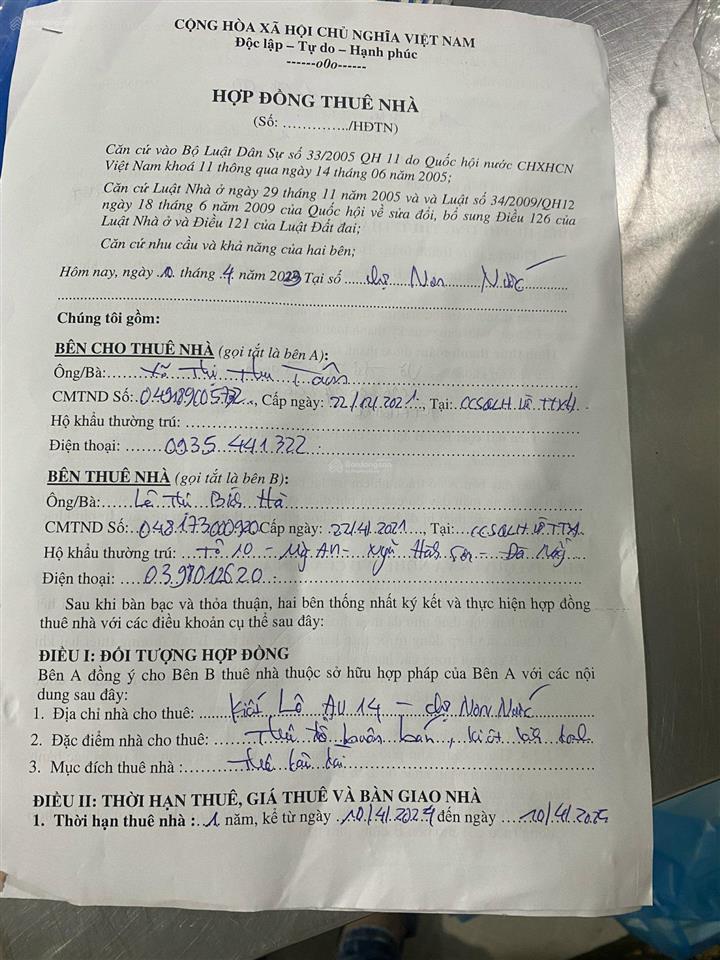 CỘNG HÒA XÃ HỘI CHỦ NGHĨA VIỆT NAM
Độc lập – Tự do – Hạnh phúc
------o0o------
HỢP ĐỒNG THUÊ NHÀ
(Số: …………../HĐTN)
Căn cứ vào Bộ Luật Dân Sự số 33/2005 QH 11 do Quốc hội nước CHXHCN
Việt Nam khoá 11 thông qua ngày 14 tháng 06 năm 2005;
Căn cứ Luật Nhà ở ngày 29 tháng 11 năm 2005 và và Luật số 34/2009/QH12
ngày 18 tháng 6 năm 2009 của Quốc hội về sửa đổi, bổ sung Điều 126 của
Luật Nhà ở và Điều 121 của Luật Đất đai;
Căn cứ nhu cầu và khả năng của hai bên;
Hôm nay, ngày 10 tháng 4 năm Tại số chợ Non Nước
Chúng tôi gồm:
BÊN CHO THUÊ NHÀ (gọi tắt là bên A):
Ông/Bà: Thị Thu
CMTND Số: Cấp ngày: Tại:
Hộ khẩu thường trú:
Điện thoại: 0935.441.322
BÊN THUÊ NHÀ (gọi tắt là bên B):
Ông/Bà: Lê Thị Bích Hà
CMTND Số: 048173000920 Cấp ngày: 22/4/2021, Tại:
Hộ khẩu thường trú: Tổ 10 – Mỹ An – Ngũ Hành Sơn – Đà Nẵng
Điện thoại: 039.8012620
Sau khi bàn bạc và thỏa thuận, hai bên thống nhất ký kết và thực hiện hợp đồng
thuê nhà với các điều khoản cụ thể sau đây:
ĐIỀU I: ĐỐI TƯỢNG HỢP ĐỒNG
Bên A đồng ý cho Bên B thuê nhà thuộc sở hữu hợp pháp của Bên A với các nội
dung sau đây:
1. Địa chỉ nhà cho thuê: Kiốt Lô AU 14 – chợ Non Nước
2. Đặc điểm nhà cho thuê: buôn bán, kiốt
3. Mục đích thuê nhà :
ĐIỀU II: THỜI HẠN THUÊ, GIÁ THUÊ VÀ BÀN GIAO NHÀ
1. Thời hạn thuê nhà : 1 năm, kể từ ngày 10/4/2024 đến ngày 10/4/2025